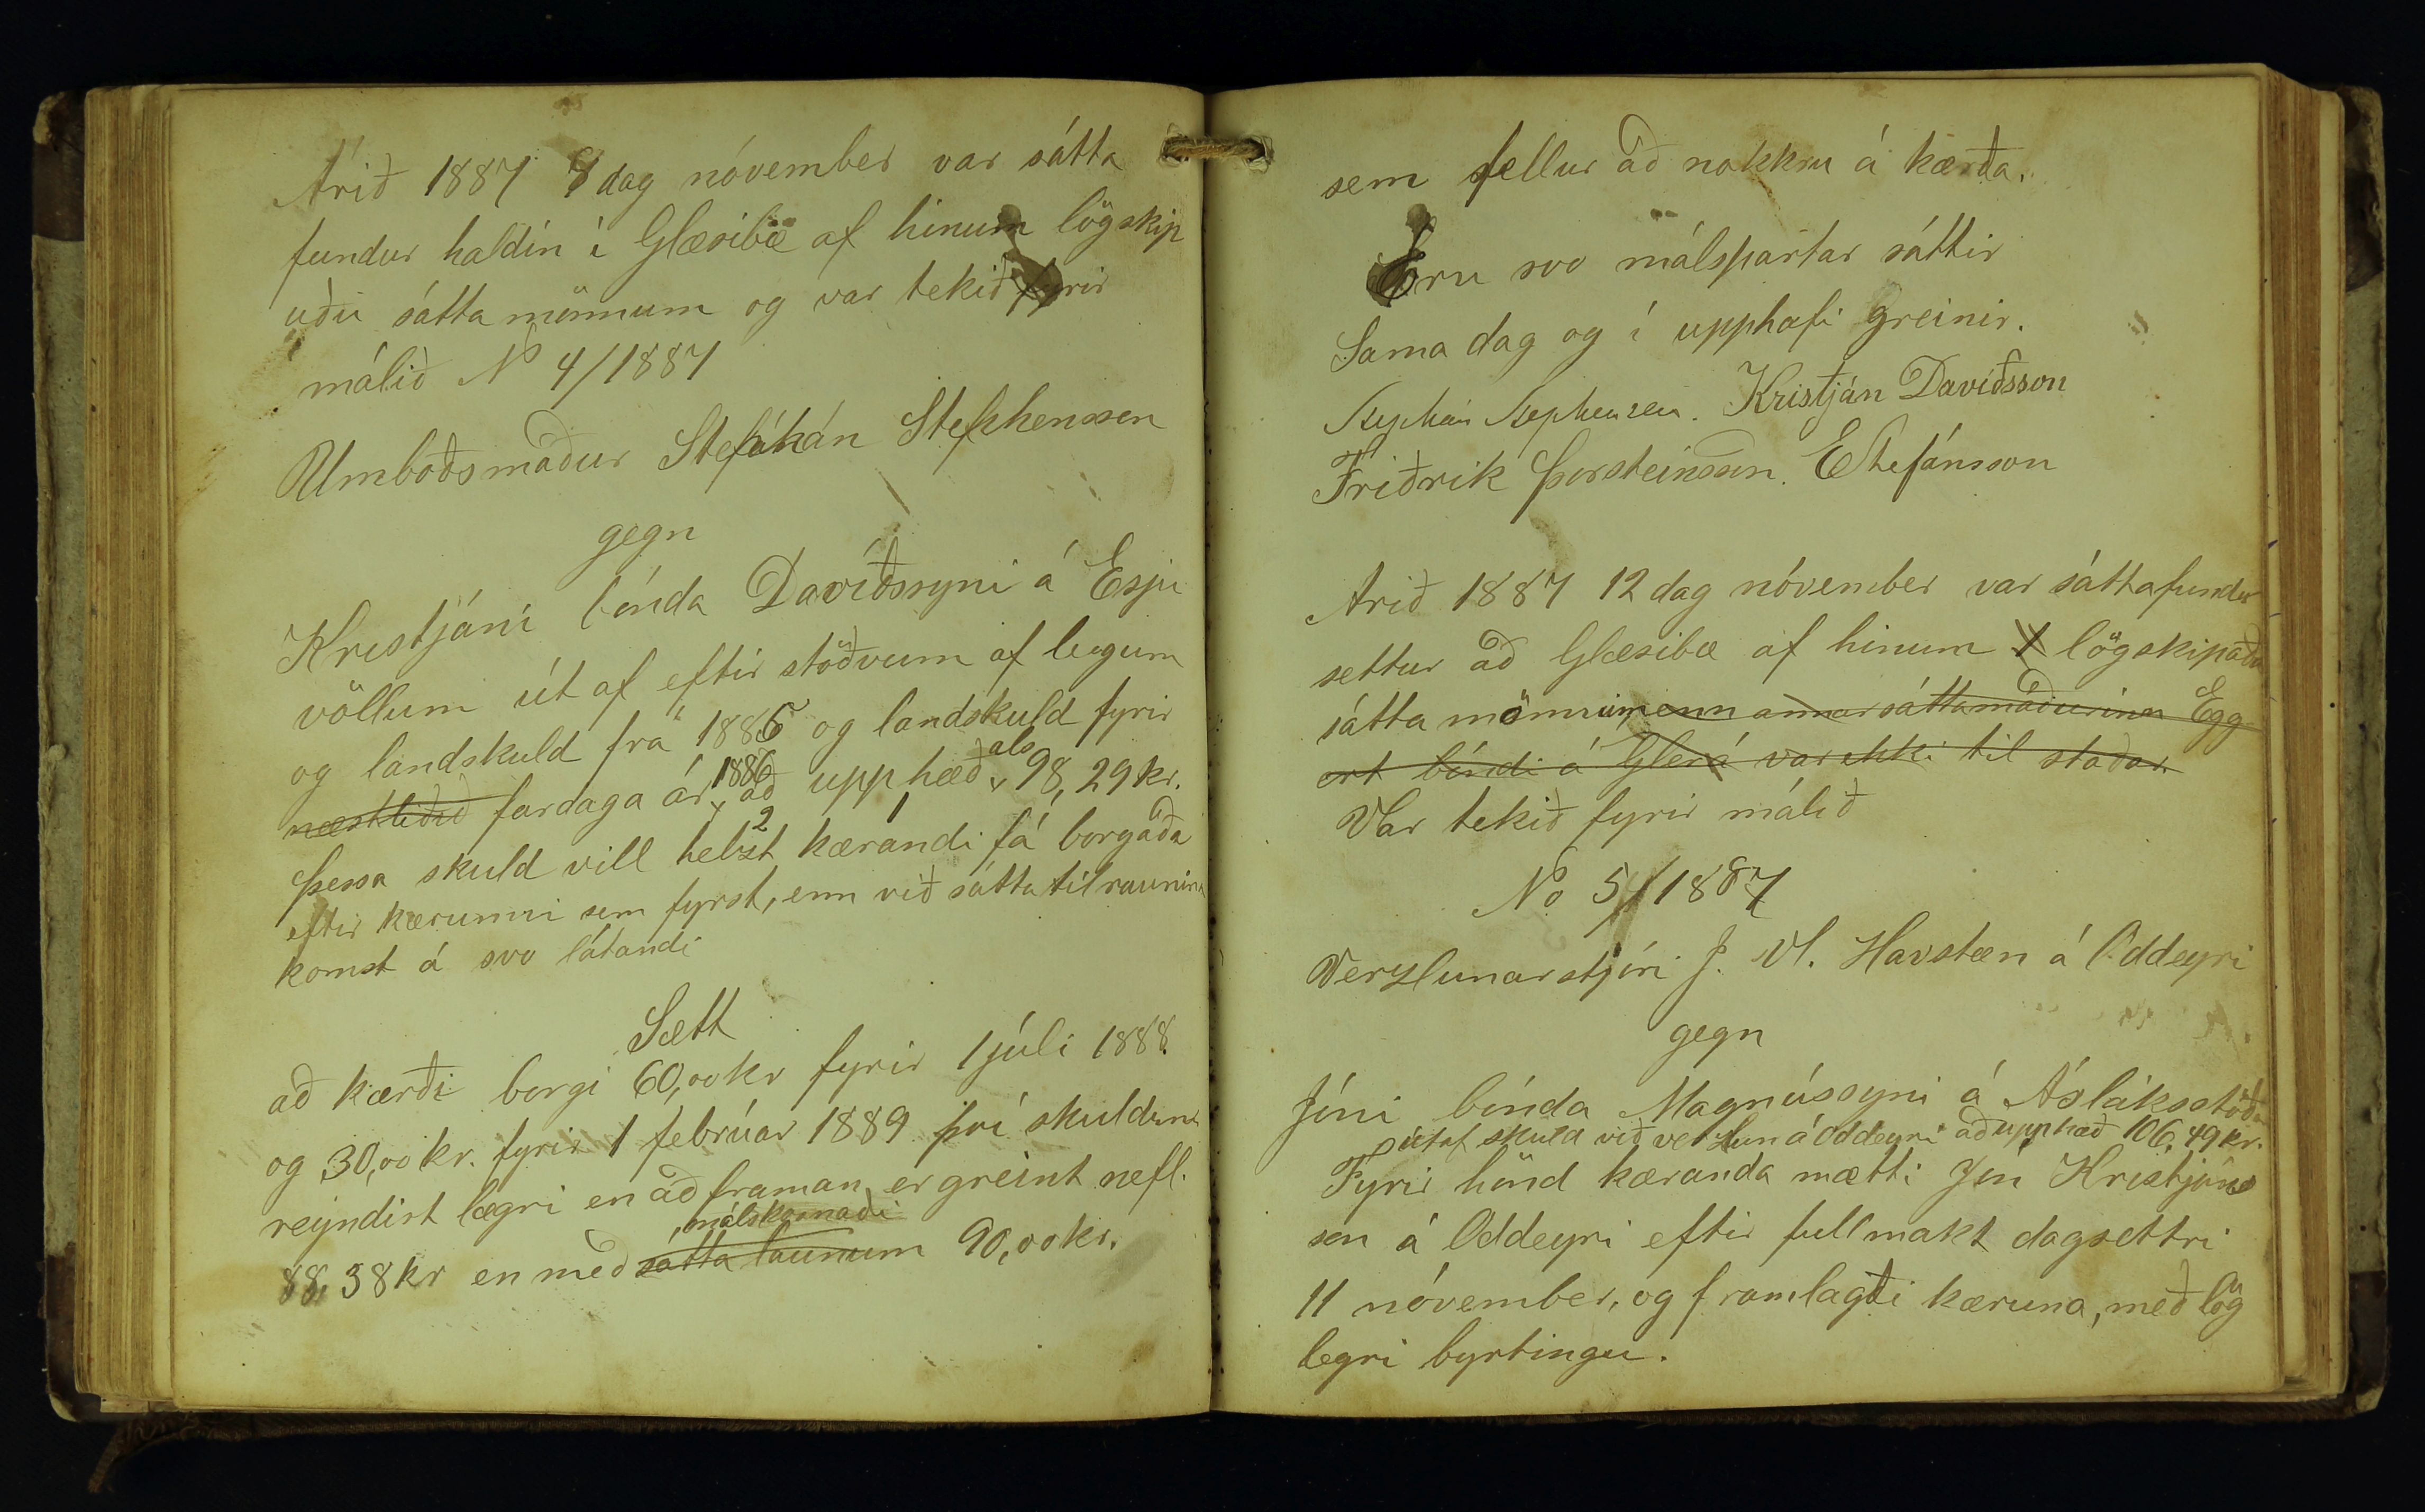 Árið 1887 8 dag nóvember var sátta
fundur haldin í Glæsibæ af hinum lögskip
uðu sátta mönnum og var tekið fyrir
málið No 4/1887
Umboðsmaður Stephán Stephensen
gegn
Kristjáni bónda Davíðssyni á Espu
völlum út af eftir stöðvum af leigum
og landskuld frá 1886 og landskuld fyrir
næstliðið fardaga ár 1886 að upphæð als 98,29 kr.
Þessa skuld vill helzt 2 kærandi 1 fá borgaða
eftir kærunni sem fyrst, enn við sátta tilraunina
komst á svo látandi
Sætt
að kærði borgi 60,00 kr fyrir 1 júli 1888
og 30,00 kr. fyrir 1 febrúar 1889 því skuldin
reyndist lægri en að framan er greint nefl.
málskosnaði
88,38 kr en með sátta launum 90,00 kr.
sem fellur að nokkru á kærða.
Eru svo málspartar sáttir
Sama dag og í upphafi greinir.
Stephán Stephensen. Kristján Davíðsson
Friðrik Þorsteinsson. EStefánsson
Árið 1887 12 dag nóvember var sáttafundur
settur að Glæsibæ af hinum lögskipaðu
sátta mönnum enn annar sáttamaðurinn Egg
ert bóndi á Glerá var ekki til staðar
Var tekið fyrir málið
No 5/1887
Verzlunarstjóri J. V. Havsteen á Oddeyri
gegn
Jóni bónda Magnússyni á Ásláksstöðu
útaf skuld við verzlun á Oddeyri að upphæð 106,49 kr.
Fyrir hönd kæranda mætti Jón Kristjáns
son á Oddeyri eftir fullmakt dagsettri
11 nóvember, og framlagði kæruna, með lög
legri byrtingu.